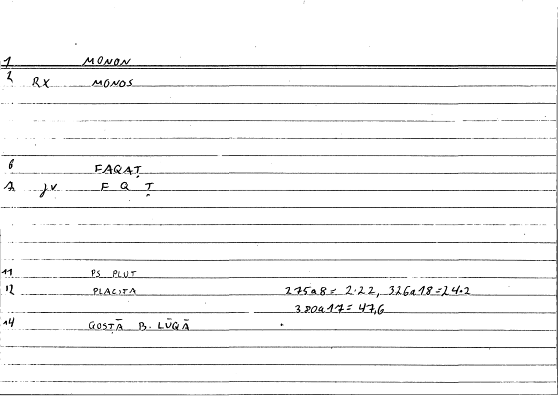 1 MONON
2 RX MONOS
6 FAQAṬ
jv F Q Ṭ
11 PS PLUT
12 PLACITA 275a8 = 2.22, 326a18 = 24.2
380a17 = 47,6
14 QOSṬĀ B. LŪQĀ